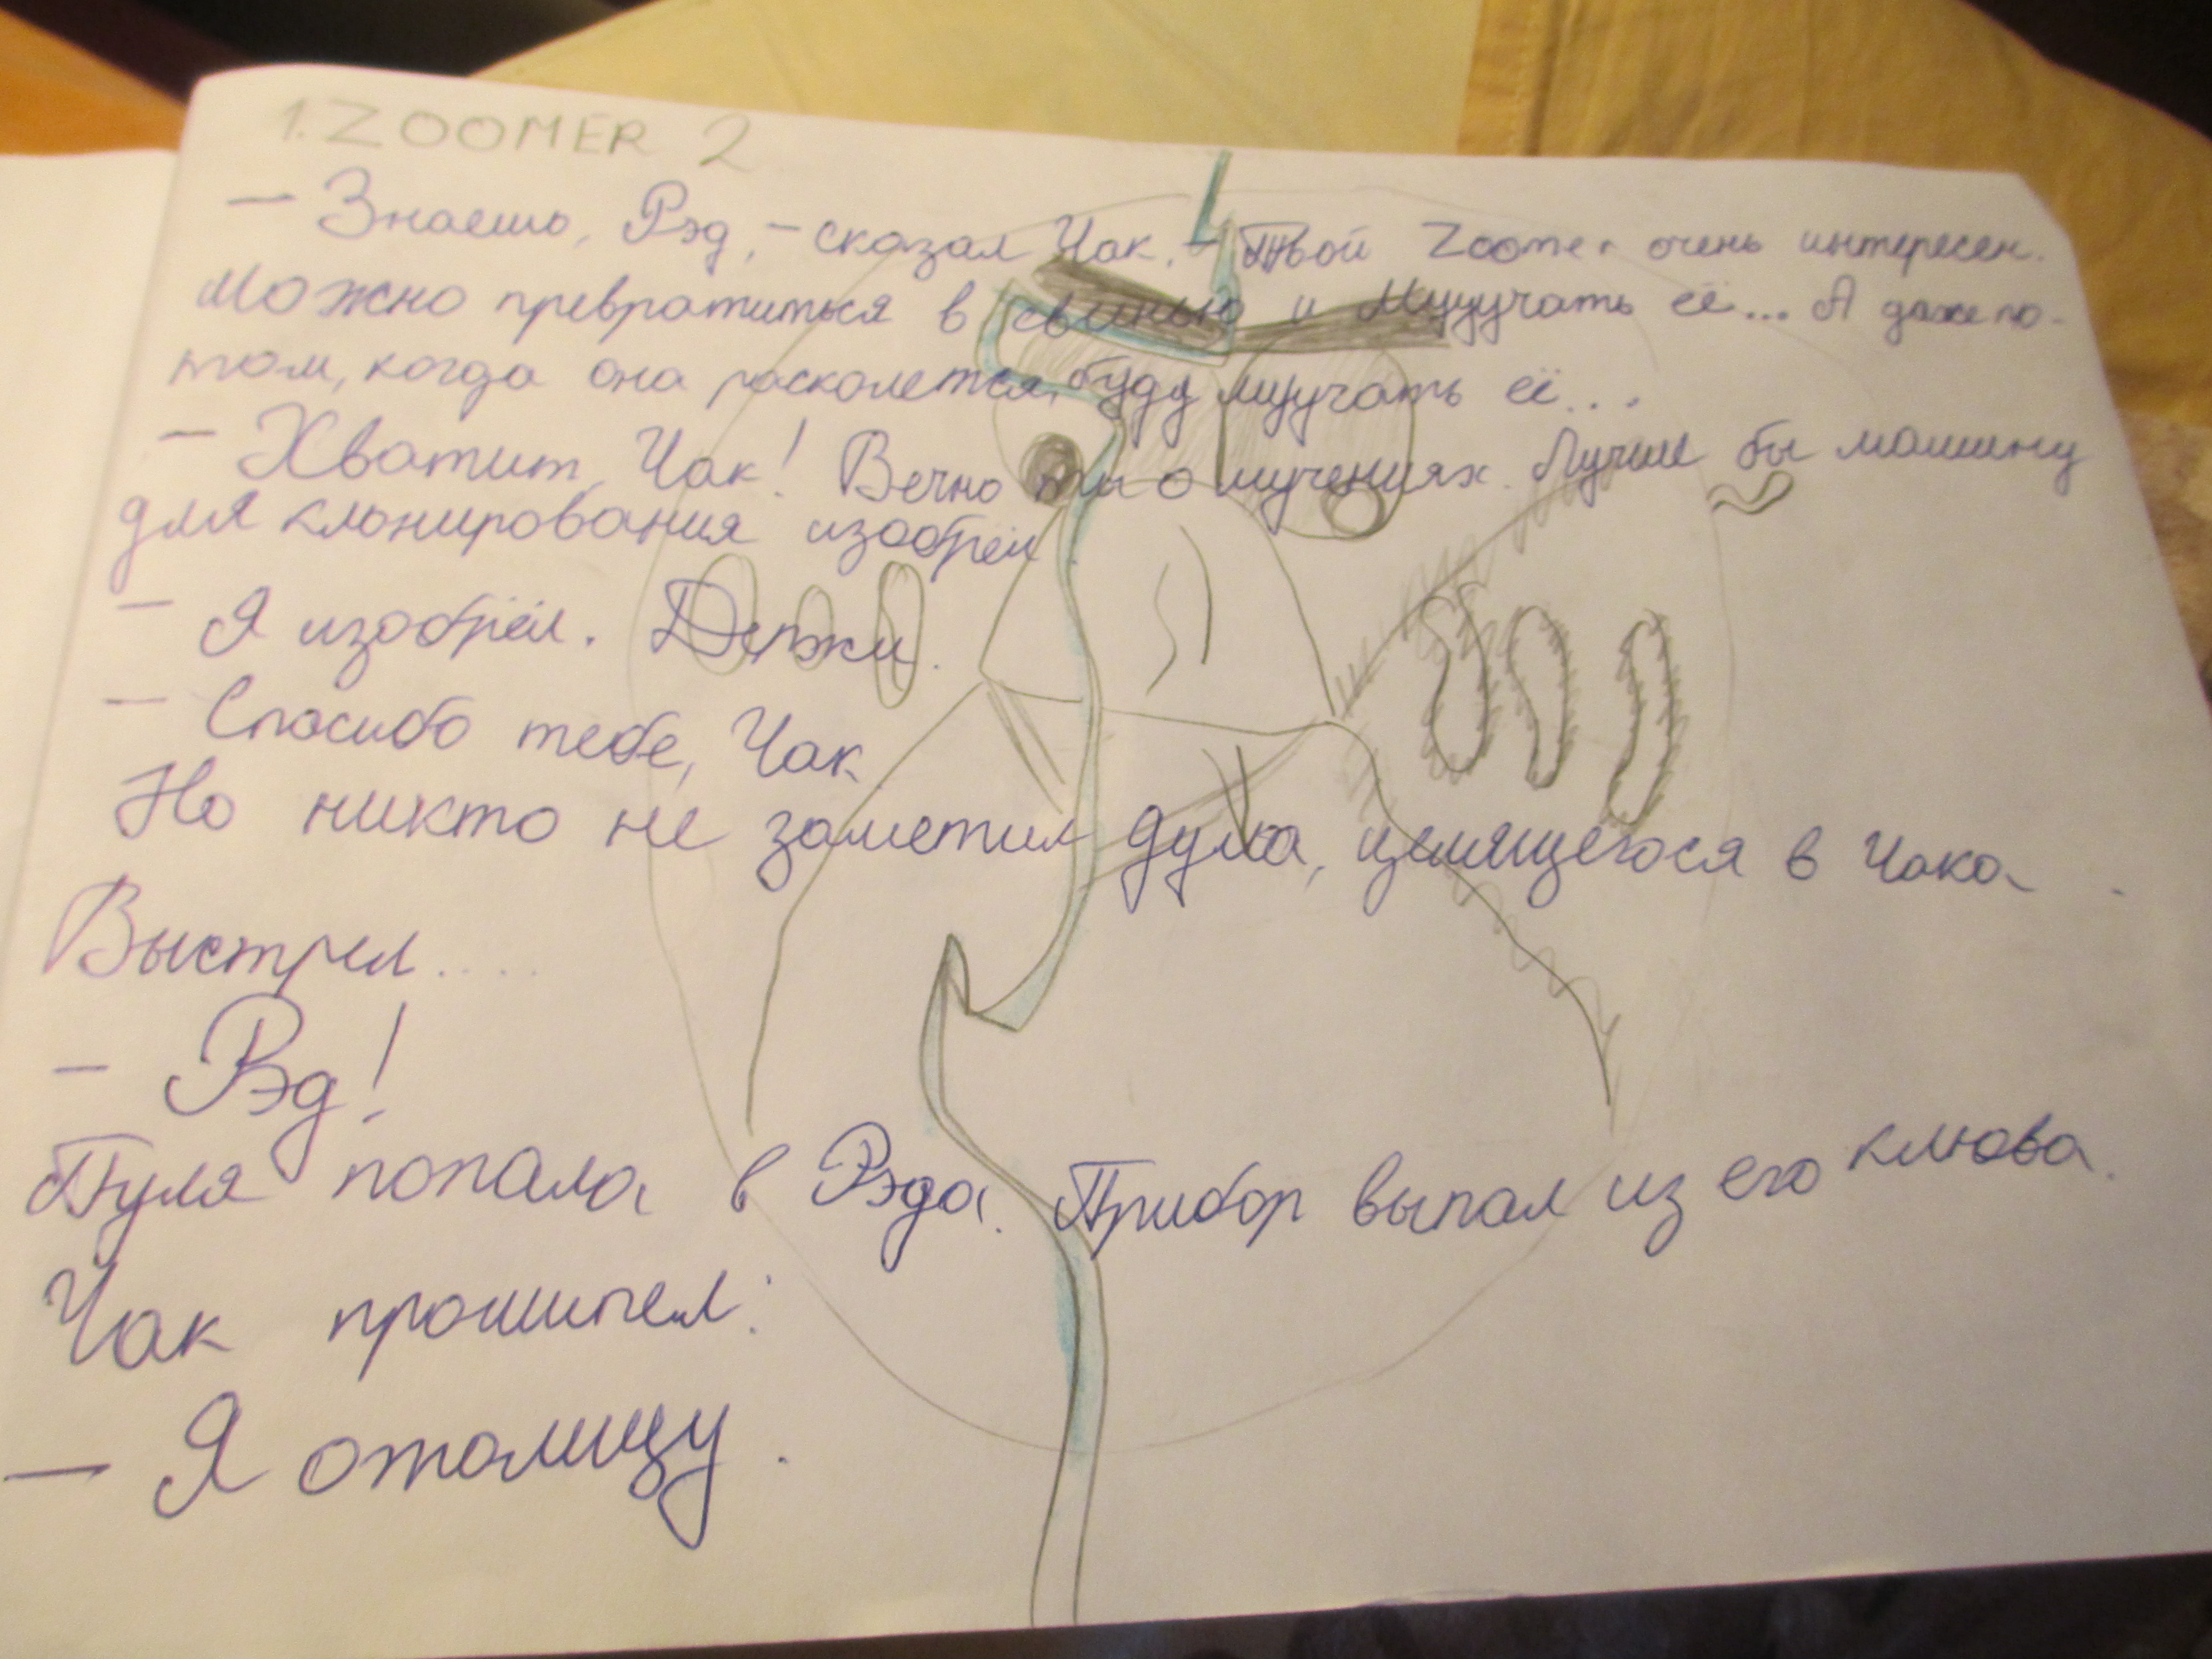 1. ZOOMER 2
— Знаешь, Рэд, – сказал Чак. – Твой Zoomer очень интересен.
Можно превратиться в свинью и Мууучать её... А даже по-
том, когда она расколется, буду мууучать её...
— Хватит, Чак! Вечно ты о мучениях. Лучше бы машину
для клонирования изобрёл.
— Я изобрёл. Держи.
— Спасибо тебе, Чак
Но никто не заметил дула, целящегося в Чака.
Выстрел....
— Рэд!
Пуля попала в Рэда. Прибор выпал из его клюва.
Чак прошипел:
— Я отомщу.